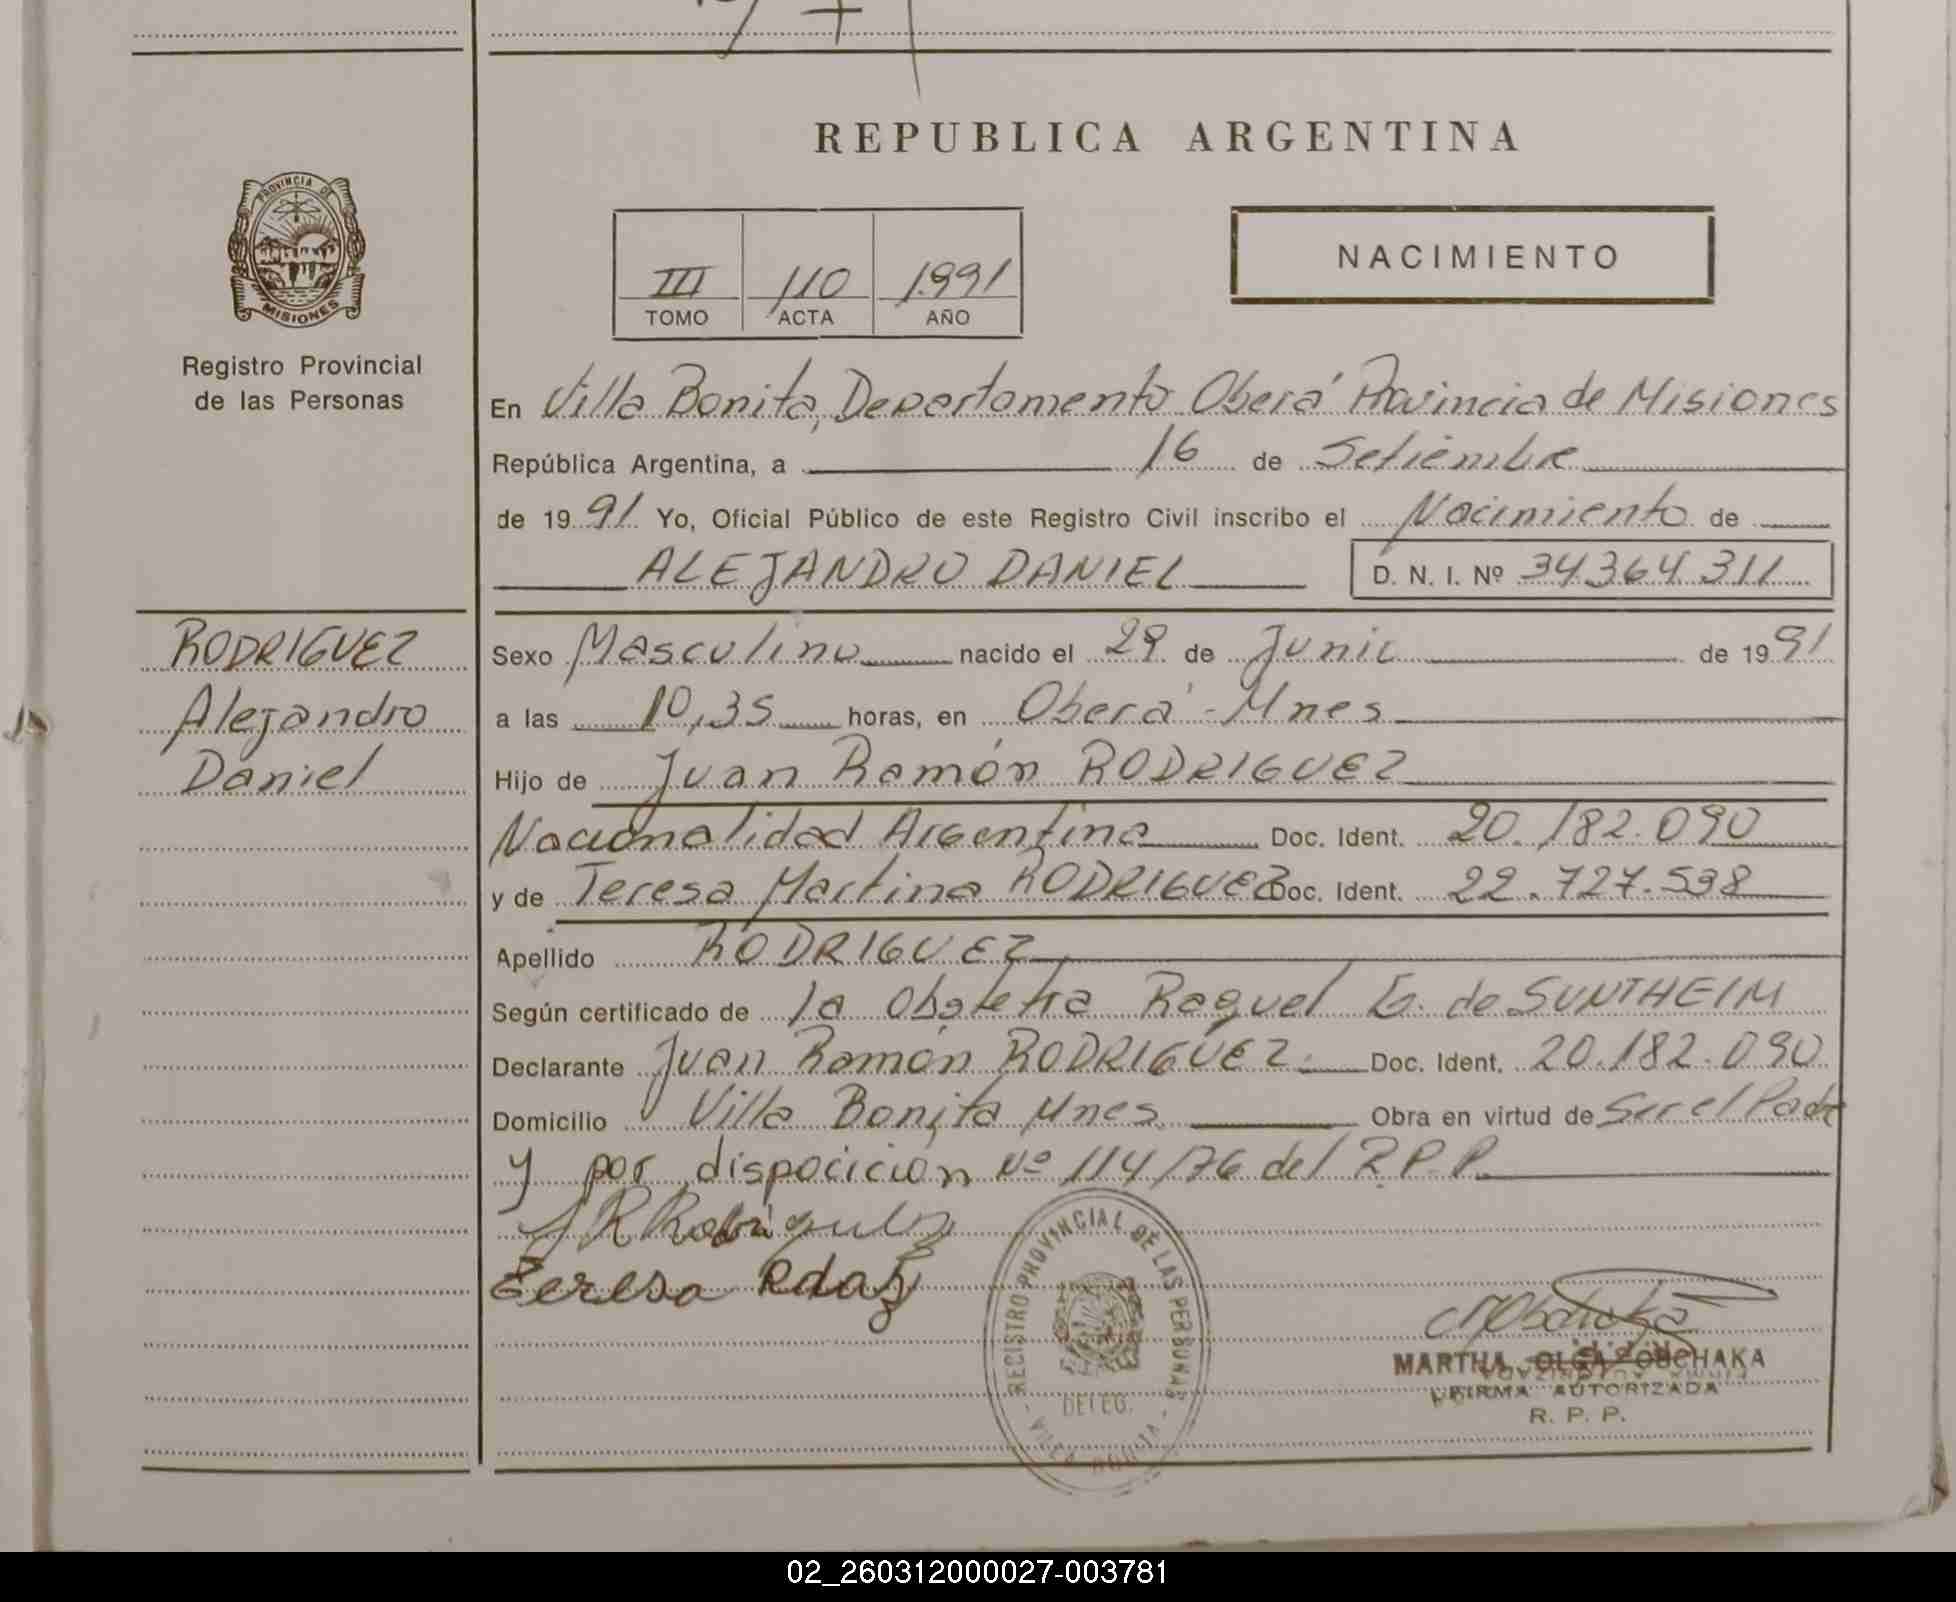 REPUBLICA ARGENTINA
PROVINCIA DE
MISIONES
Registro Provincial
de las Personas
NACIMIENTO
III 110 1991
TOMO ACTA AÑO
En Villa Bonita, Departamento Oberá Provincia de Misiones
República Argentina, a 16 de Setiembre
de 1991 Yo, Oficial Público de este Registro Civil inscribo el Nacimiento de
ALEJANDRO DANIEL D. N. I. Nº 34364311
RODRIGUEZ
Alejandro
Daniel
Sexo Masculino nacido el 29 de Junio de 1991
a las 10,35 horas, en Oberá - Mnes
Hijo de Juan Ramón RODRIGUEZ
Nacionalidad Argentina Doc. Ident. 20.182.090
y de Teresa Martina RODRIGUEZ Doc. Ident. 22.727.538
Apellido RODRIGUEZ
Según certificado de la Obstetra Raquel G. de SUNTHEIM
Declarante Juan Ramón RODRIGUEZ. Doc. Ident. 20.182.090
Domicilio Villa Bonita Mnes. Obra en virtud de Ser el Padre
y por disposición Nº 114/76 del R.P.P.
J R Rodriguez
Teresa Rdaz
REGISTRO PROVINCIAL DE LAS PERSONAS
DELEG.
VILLA BONITA
MARTHA OLGA OBCHAKA
FIRMA AUTORIZADA
R. P. P.
02_260312000027-003781